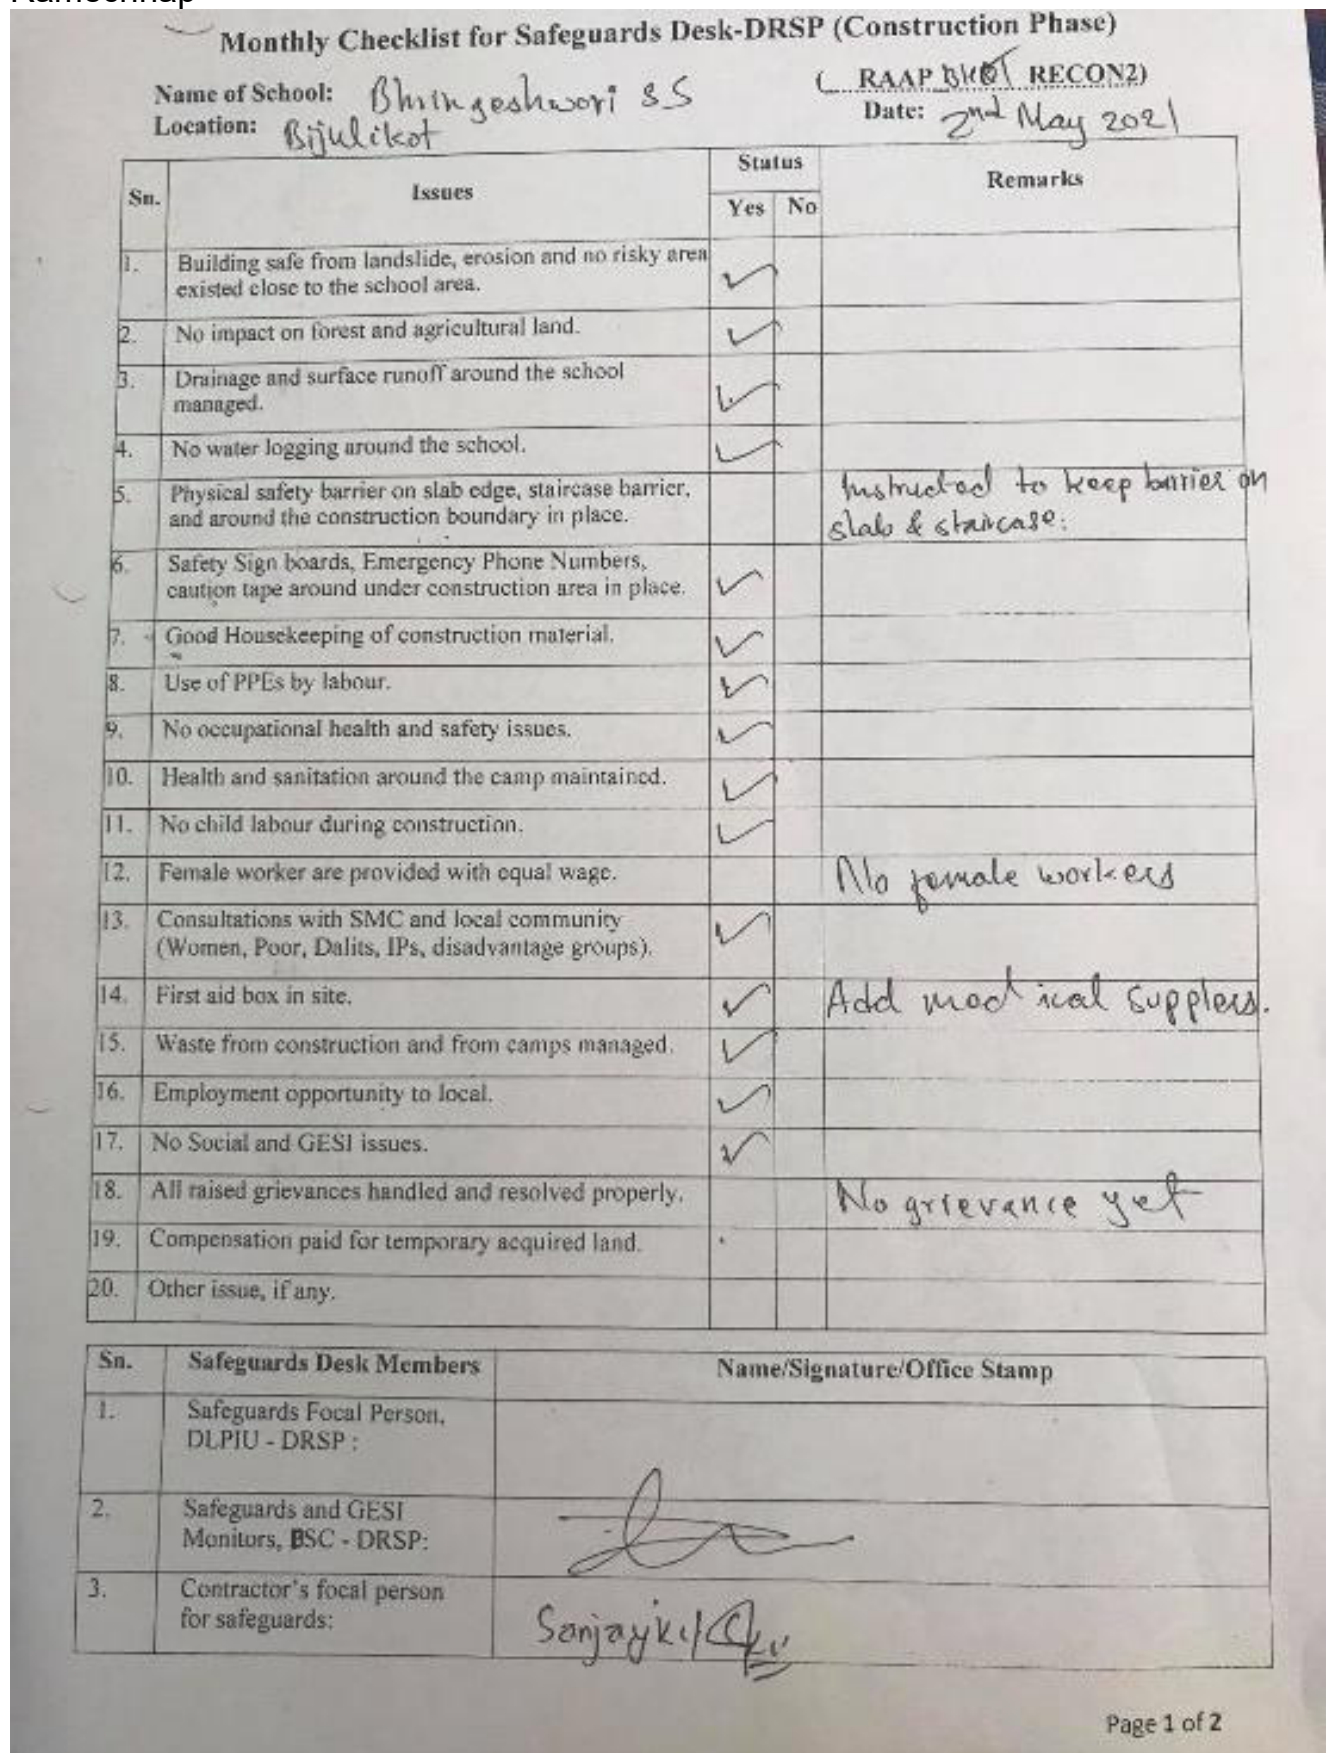 Monthly Checklist for Safeguards Desk-DRSP (Construction Phase)
Name of School: Bhringeshwori SS
( RAAP RECON2)
Location: Bijulikot
Date: 2nd May 2021
Sn. Issues Status Remarks
Yes No
1. Building safe from landslide, erosion and no risky area
existed close to the school area. ✓
2. No impact on forest and agricultural land. ✓
3. Drainage and surface runoff around the school
managed. ✓
4. No water logging around the school. ✓
5. Physical safety barrier on slab edge, staircase barrier, Instructed to keep barrier on
and around the construction boundary in place. slab & staircase.
6. Safety Sign boards, Emergency Phone Numbers,
caution tape around under construction area in place. ✓
7. Good Housekeeping of construction material. ✓
8. Use of PPEs by labour. ✓
9. No occupational health and safety issues. ✓
10. Health and sanitation around the camp maintained. ✓
11. No child labour during construction. ✓
12. Female worker are provided with equal wage. No female workers
13. Consultations with SMC and local community
(Women, Poor, Dalits, IPs, disadvantage groups). ✓
14. First aid box in site. ✓ Add medical supplers.
15. Waste from construction and from camps managed. ✓
16. Employment opportunity to local. ✓
17. No Social and GESI issues. ✓
18. All raised grievances handled and resolved properly. No grievance yet
19. Compensation paid for temporary acquired land.
20. Other issue, if any.
Sn. Safeguards Desk Members Name/Signature/Office Stamp
1. Safeguards Focal Person,
DLPIU - DRSP :
2. Safeguards and GESI
Monitors, BSC - DRSP:
3. Contractor's focal person
for safeguards:
Page 1 of 2